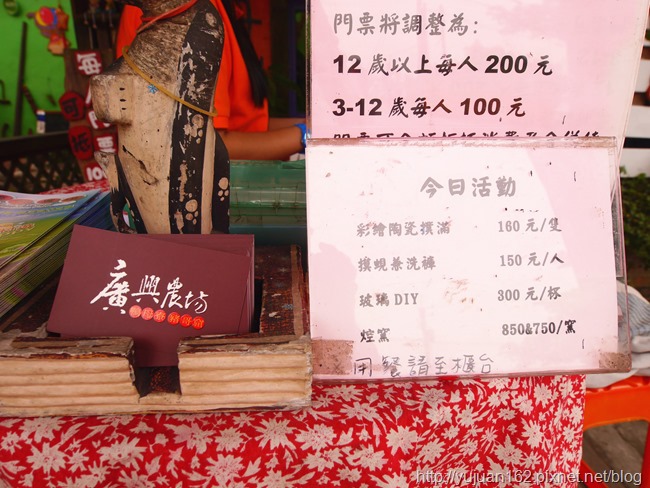 門票將調整為:
12 歲以上每人 200 元
3-12 歲每人 100 元
今日活動
彩繪陶瓷撲滿 160 元/隻
摸蜆兼洗褲 150 元/人
玻璃DIY 300 元/杯
焢窯 850&750/窯
用餐請至櫃台
廣興農場
每
http://yujuan162.pixnet.net/blog